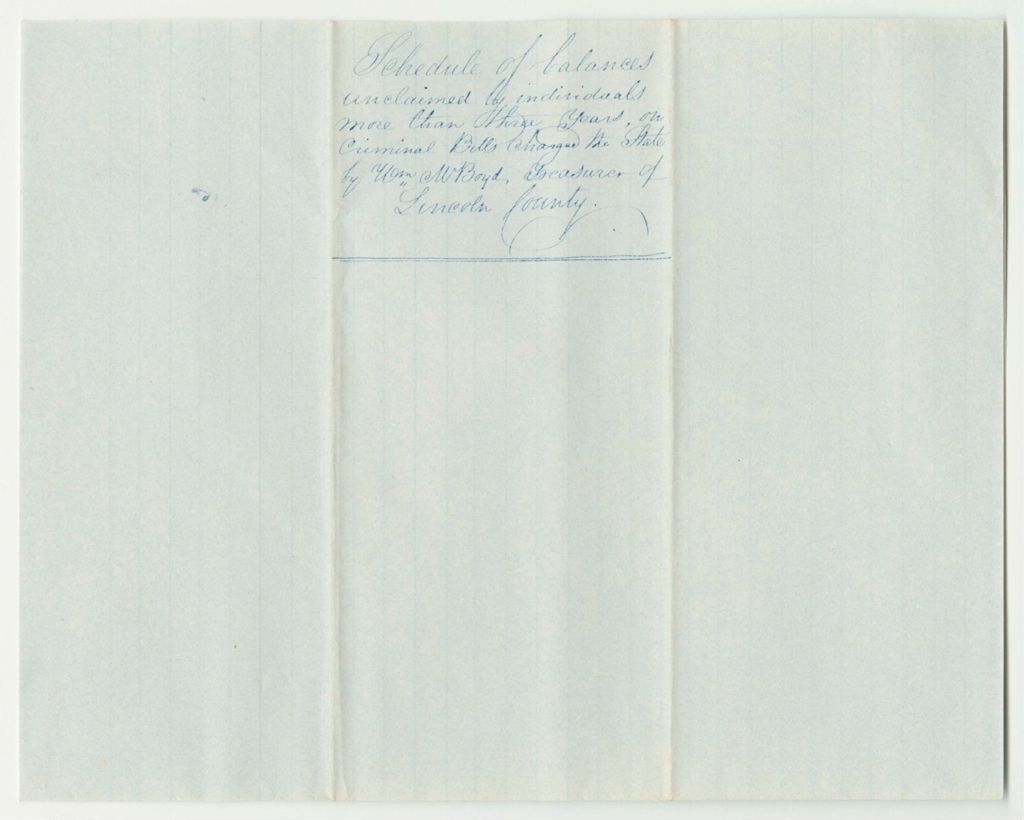 Schedule of balances
unclaimed by individuals
more than three Years, on
Criminal Bills Charged the State
by Wm M Boyd, Treasurer of
Lincoln County.